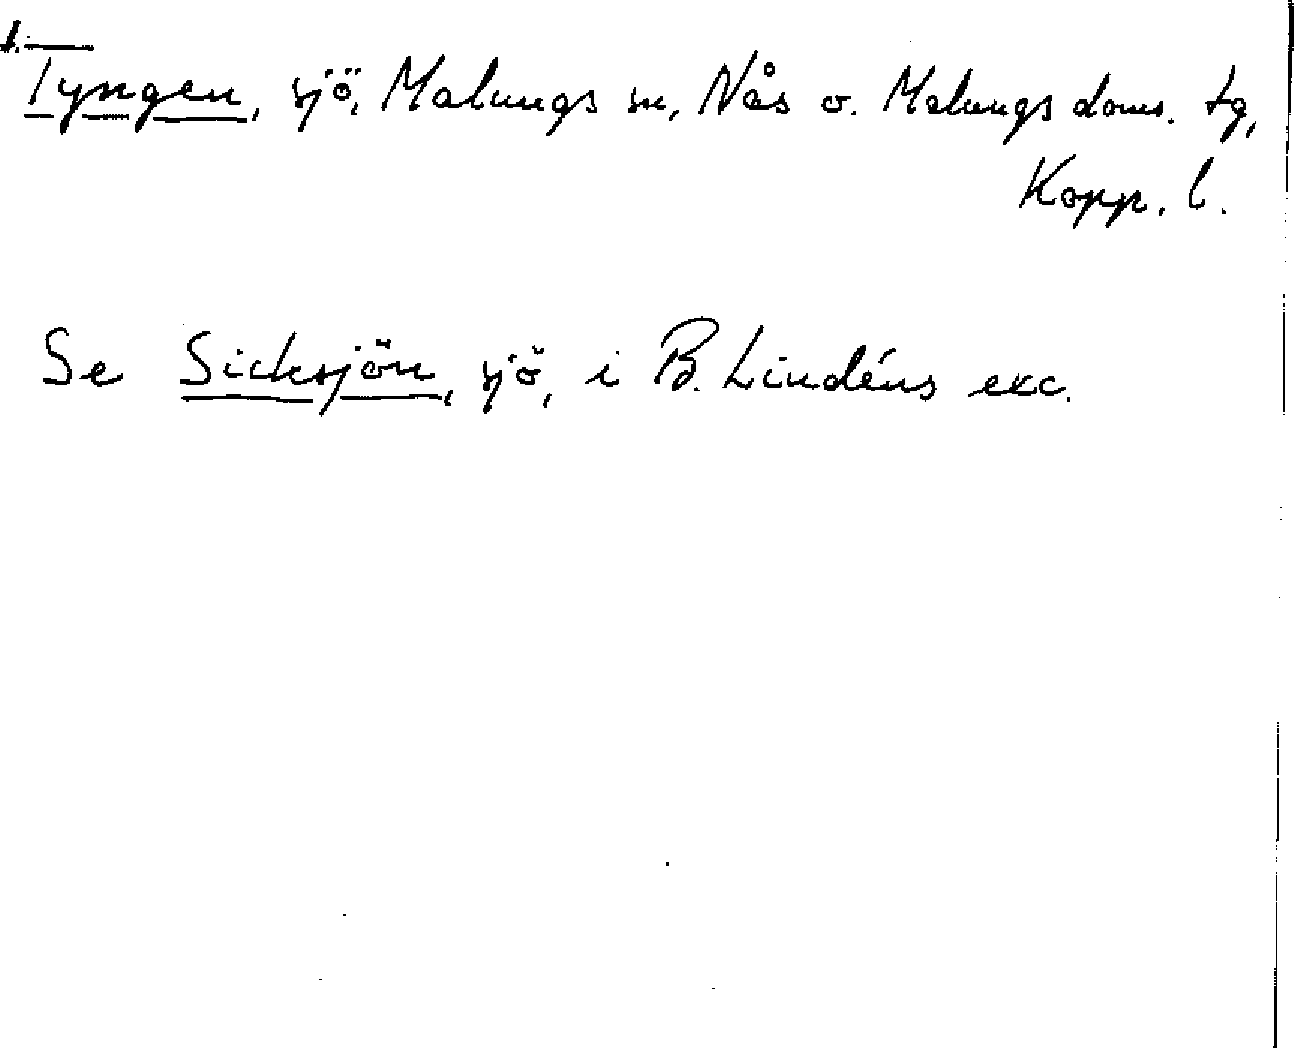 1. Tyngen, sjö, Malungs sn, Nås o. Malungs doms. tg,
Kopp. l.
Se Sicksjön, sjö, i B. Lindéns exc.